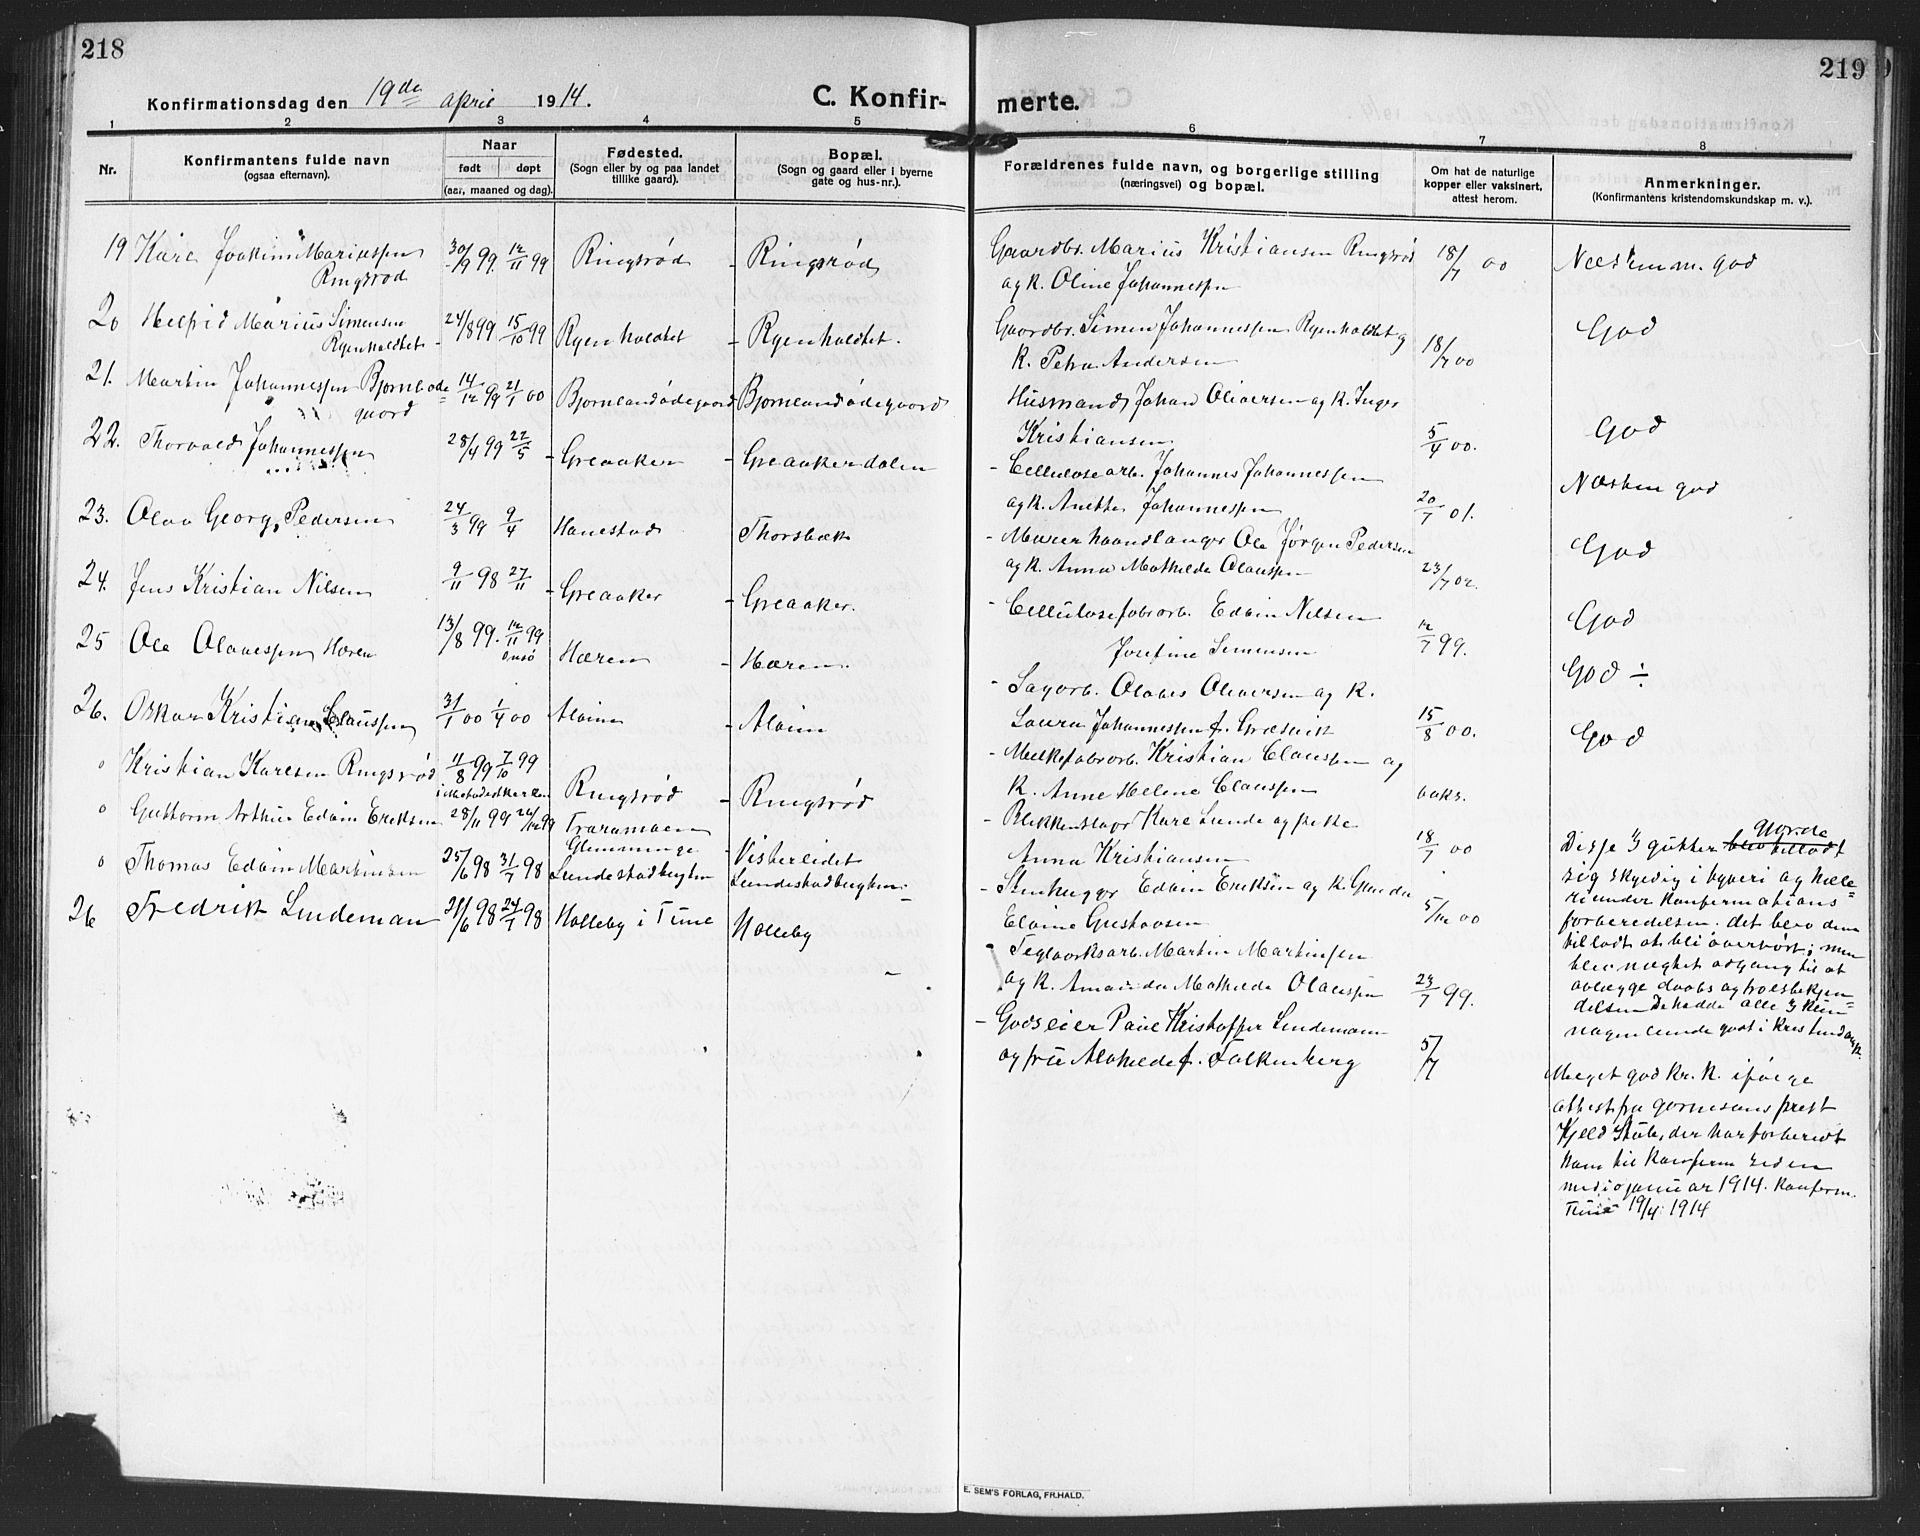 218
Konfirmationsdag den 19de april 1914.
C. Konfir-
1 2 3 4 5
Nr.
Konfirmantens fulde navn
(ogsaa efternavn).
Naar
født døpt
(aar, maaned og dag).
Fødested.
(Sogn eller by og paa landet
tillike gaard).
Bopæl.
(Sogn og gaard eller i byerne
gate og hus-nr.).
19 Kåre Joakim Mariussen 30/9 99. 12/11 99 Ringsrød - Ringsrød
Ringsrød
20 Helfrid Marius Simensen 24/8 99 15/10 99 Ryenholdtet - Ryenholdtet.
Ryenholdtet
21. Martin Johannessen Bjørnlode= 14/12 99 21/1 00 Bjørnlandødegaard Bjørnlandødegaard
gaard
22. Thorvald Johannessen 28/4 99 22/5 - Greaaker - Greaakerdalen
23. Olav Georg Pedersen 24/3 99 9/4 Hanestad Thorsbæk
24. Jens Kristian Nilsen 9/11 98 27/11 - Greaaker - Greaaker.
25 Ole Olavessen Hæren 13/8 99. 12/11 99 Hæren - Hæren.
onsø
26. Oskar Kristian Claussen 31/1 00 1/4 00 Alvim - Alvim
o Kristian Karlsen Ringsrød 11/8 99 7/10 99 Ringsrød - Ringsrød
o Guttorm Arthur Edvin Eriksen 28/11 99 26/12 99 Traramoen
Glemminge - Visterleidet
o Thomas Edvin Martinsen 25/6 98 31/7 98 Lundestadbugten Lundestadbugten.
26 Fredrik Lindeman 21/6 98 24/7 98 Halleby i Tune - Halleby
219
merte.
6 7 8
Forældrenes fulde navn, og borgerlige stilling
(næringsvei) og bopæl.
Om hat de naturlige
kopper eller vaksinert,
attest herom.
Anmerkninger.
(Konfirmantens kristendomskundskap m. v.).
Gaardbr. Marius Kristiansen Ringsrød 18/7 00 Næsten m. god
og k. Oline Johannessen
Gaardbr. Simen Johannessen Ryenholdtet og God
k. Petra Andersen 18/7 00
Husmand Johan Oliversen og k. Inger
Kristiansen 5/4 00. God
- Cellulosearb. Johannes Johannessen Næsten god
og k. Anette Johannessen 20/7 01.
- Murerhaandlanger Ole Jørgen Pedersen God
og k. Anna Mathilde Olaussen 23/7 02.
- Cellulosefabarb. Edvin Nilsen God
Josefine Simensen 12/7 99.
- Sagarb. Olaves Oliversen og k. God ÷
Laura Johannessen f. Græsvik 15/8 00. God
- Melkefabarb. Kristian Claussen og
k. Anne Helene Claussen vaks.
- Blikkenslager Kare Lunde og pike
Anna Kristiansen 18/7 00
- Stenhugger Edvin Eriksen og k. Gunda
Elvine Gustavsen 5/12 00
Teglverksarb. Martin Martinsen
og k. Amanda Mathilde Olaussen 23/7 99.
- Godseier Paul Kristoffer Lindemann
og fru Alvhilde f. Falkenberg 5/7
gjorde
Disse 3 gutter blev tilladt
sig skyldig i tyveri og hæle=
ri under konfirmations
forberedelsen; det blev dem
tilladt at bli overhørt; men
blev nægtet adgang til at
avlægge daabs og troesbekjen=
delsen De hadde alle 3 kun
nogenlunde godt i kristendomsk.
Meget god kr. k. ifølge
attest fra garnisonsprest
Kjeld Stub, der har forberedt
ham til konfirm siden
medio januar 1914. Konfirm.
Tune 19/4 1914
E. SEM'S FORLAG, FR.HALD.